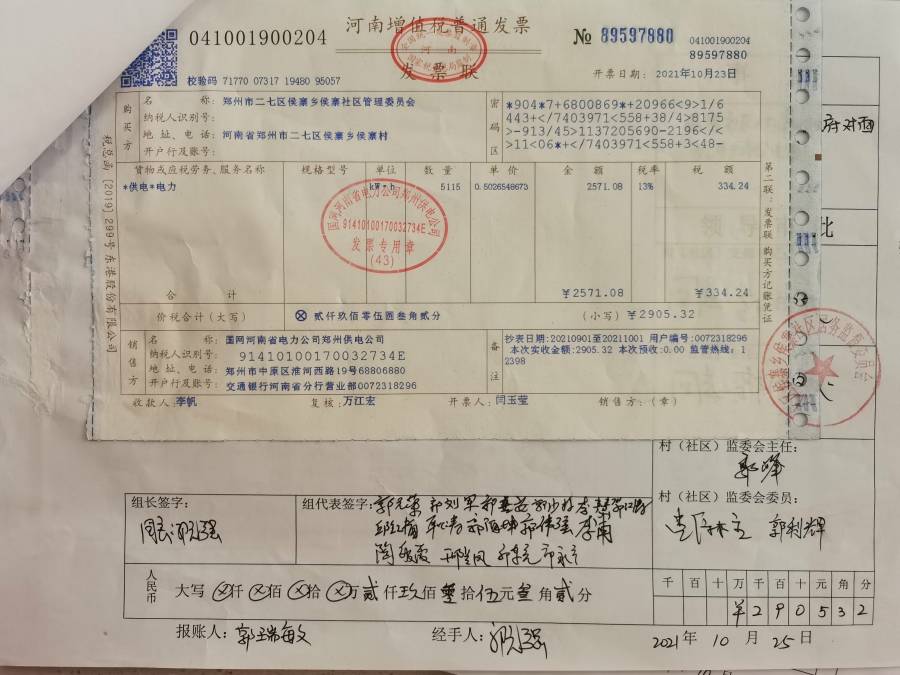 041001900204
河南增值税普通发票
发票联
№ 89597880
041001900204
89597880
校验码 71770 07317 19480 95057
开票日期: 2021年10月23日
购买方
名称: 郑州市二七区侯寨乡侯寨社区管理委员会
纳税人识别号:
地址、电话: 河南省郑州市二七区侯寨乡侯寨村
开户行及账号:
密码区
*904*7+6800869*+20966<9>1/6
443+</7403971<558+38/4>8175
>-913/45>1137205690-2196</<
>11<06*+</7403971<558+3<48-
货物或应税劳务、服务名称 规格型号 单位 数量 单价 金额 税率 税额
*供电*电力 kW·h 5115 0.5026548673 2571.08 13% 334.24
国网河南省电力公司郑州供电公司
91410100170032734E
发票专用章
(43)
合计 ¥2571.08 ¥334.24
价税合计(大写) ⊗ 贰仟玖佰零伍圆叁角贰分 (小写) ¥2905.32
销售方
名称: 国网河南省电力公司郑州供电公司
纳税人识别号: 91410100170032734E
地址、电话: 郑州市中原区淮河西路19号68806880
开户行及账号: 交通银行河南省分行营业部0072318296
备注
抄表日期:20210901至20211001 用户编号:0072318296
本次实收金额:2905.32 本次预收:0.00 监管热线:1
2398
收款人: 李帆 复核: 万江宏 开票人: 闫玉莹 销售方:(章)
税总函[2019]299号东港股份有限公司
第二联:发票联 购买方记账凭证
府对面
村(社区)监委会主任:
村(社区)监委会委员:
郭利辉
组长签字:
组代表签字:
人民币
大写 ⊗仟⊗佰⊗拾⊗万贰仟玖佰零拾伍元叁角贰分
千 百 十 万 千 百 十 元 角 分
¥ 2 9 0 5 3 2
报账人: 郭瑞敏 经手人:
2021年 10月 25日